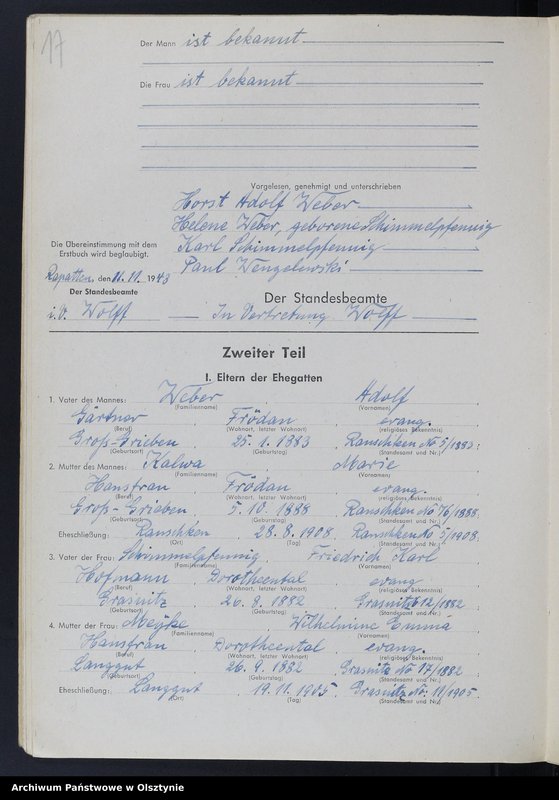 17
Der Mann ist bekannt
Die Frau ist bekannt
Vorgelesen, genehmigt und unterschrieben
Horst Adolf Weber
Helene Weber, geborene Schimmelpfennig
Karl Schimmelpfennig
Paul Wengelewski
Die Übereinstimmung mit dem
Erstbuch wird beglaubigt.
Rapatten, den 11. 11. 1943
Der Standesbeamte
i.V. Wolff
Der Standesbeamte
In Vertretung Wolff
Zweiter Teil
I. Eltern der Ehegatten
1. Vater des Mannes: Weber Adolf
(Familienname) (Vornamen)
Gärtner Frödau evang.
(Beruf) (Wohnort, letzter Wohnort) (religiöses Bekenntnis)
Groß-Grieben 25. 1. 1883 Rauschken No 5/1883.
(Geburtsort) (Geburtstag) (Standesamt und Nr.)
2. Mutter des Mannes: Kalwa Marie
(Familienname) (Vornamen)
Hausfrau Frödau evang.
(Beruf) (Wohnort, letzter Wohnort) (religiöses Bekenntnis)
Groß-Grieben 5. 10. 1888 Rauschken No 76/1888.
(Geburtsort) (Geburtstag) (Standesamt und Nr.)
Eheschließung: Rauschken 28. 8. 1908. Rauschken No 5/1908.
(Ort) (Tag) (Standesamt und Nr.)
3. Vater der Frau: Schimmelpfennig Friedrich Karl
(Familienname) (Vornamen)
Hofmann Dorotheental evang
(Beruf) (Wohnort, letzter Wohnort) (religiöses Bekenntnis)
Grasnitz 26. 8. 1882 Grasnitz 12/1882
(Geburtsort) (Geburtstag) (Standesamt und Nr.)
4. Mutter der Frau: Meyke Wilhelmine Emma
(Familienname) (Vornamen)
Hausfrau Dorotheental evang.
(Beruf) (Wohnort, letzter Wohnort) (religiöses Bekenntnis)
Langgut 26. 9. 1882 Grasnitz No 17/1882
(Geburtsort) (Geburtstag) (Standesamt und Nr.)
Eheschließung: Langgut 19. 11. 1905. Grasnitz No. 11/1905.
(Ort) (Tag) (Standesamt und Nr.)
Archiwum Państwowe w Olsztynie